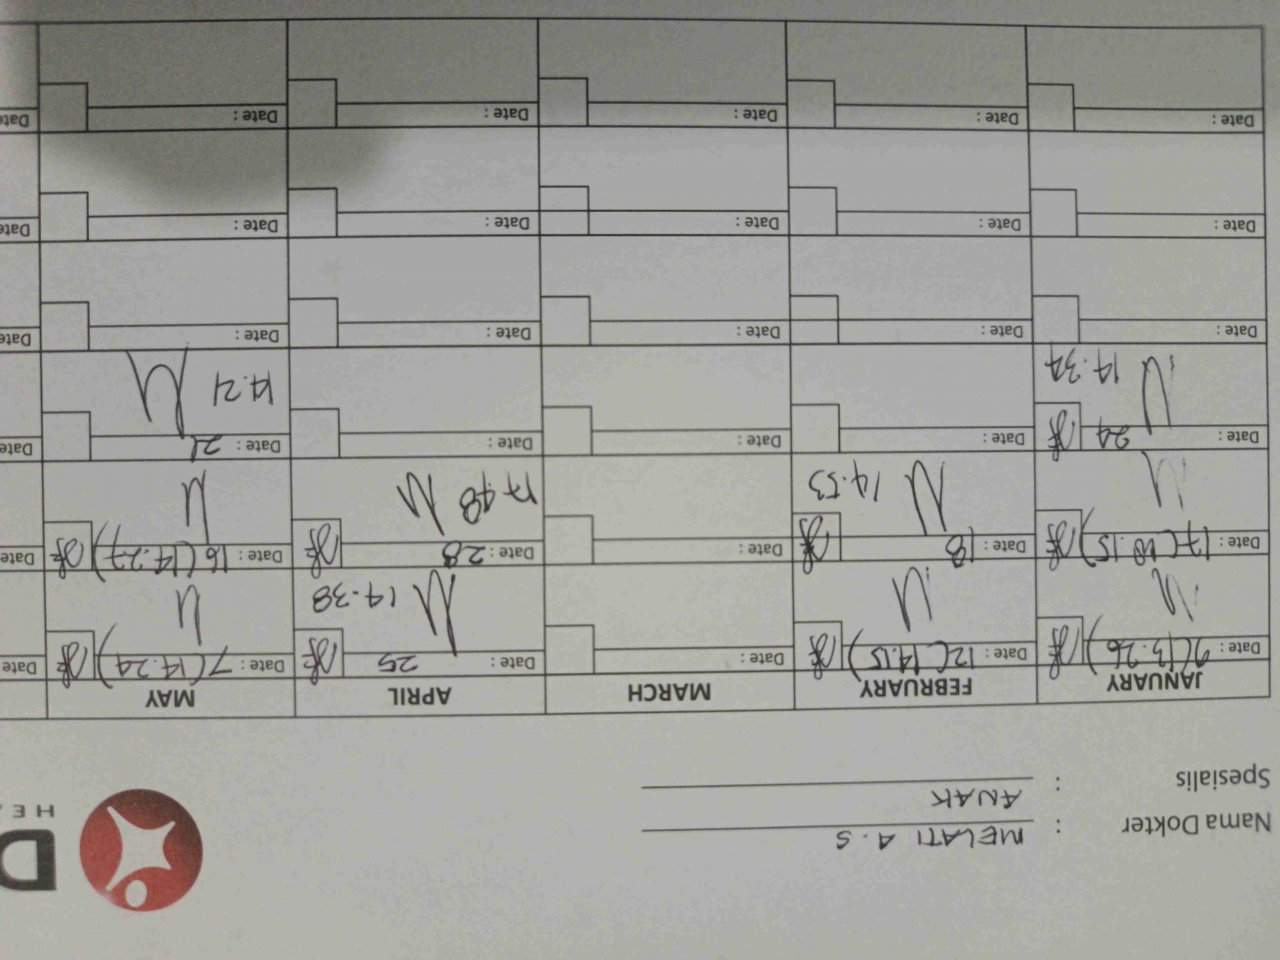 Nama Dokter : MELATI A.S
Spesialis : ANAK
D
HEA
JANUARY FEBRUARY MARCH APRIL MAY
Date : 9 (13.26) Date : 12 (14.15) Date : Date : 25 14.38 Date : 7 (14.24) Date
Date : 17 (10.15) Date : 18 14.53 Date : Date : 28 17.48 Date : 16 (14.27) Date
Date : 24 14.34 Date : Date : Date : Date : 21 14.21 Date
Date : Date : Date : Date : Date : Date
Date : Date : Date : Date : Date : Date
Date : Date : Date : Date : Date : Date